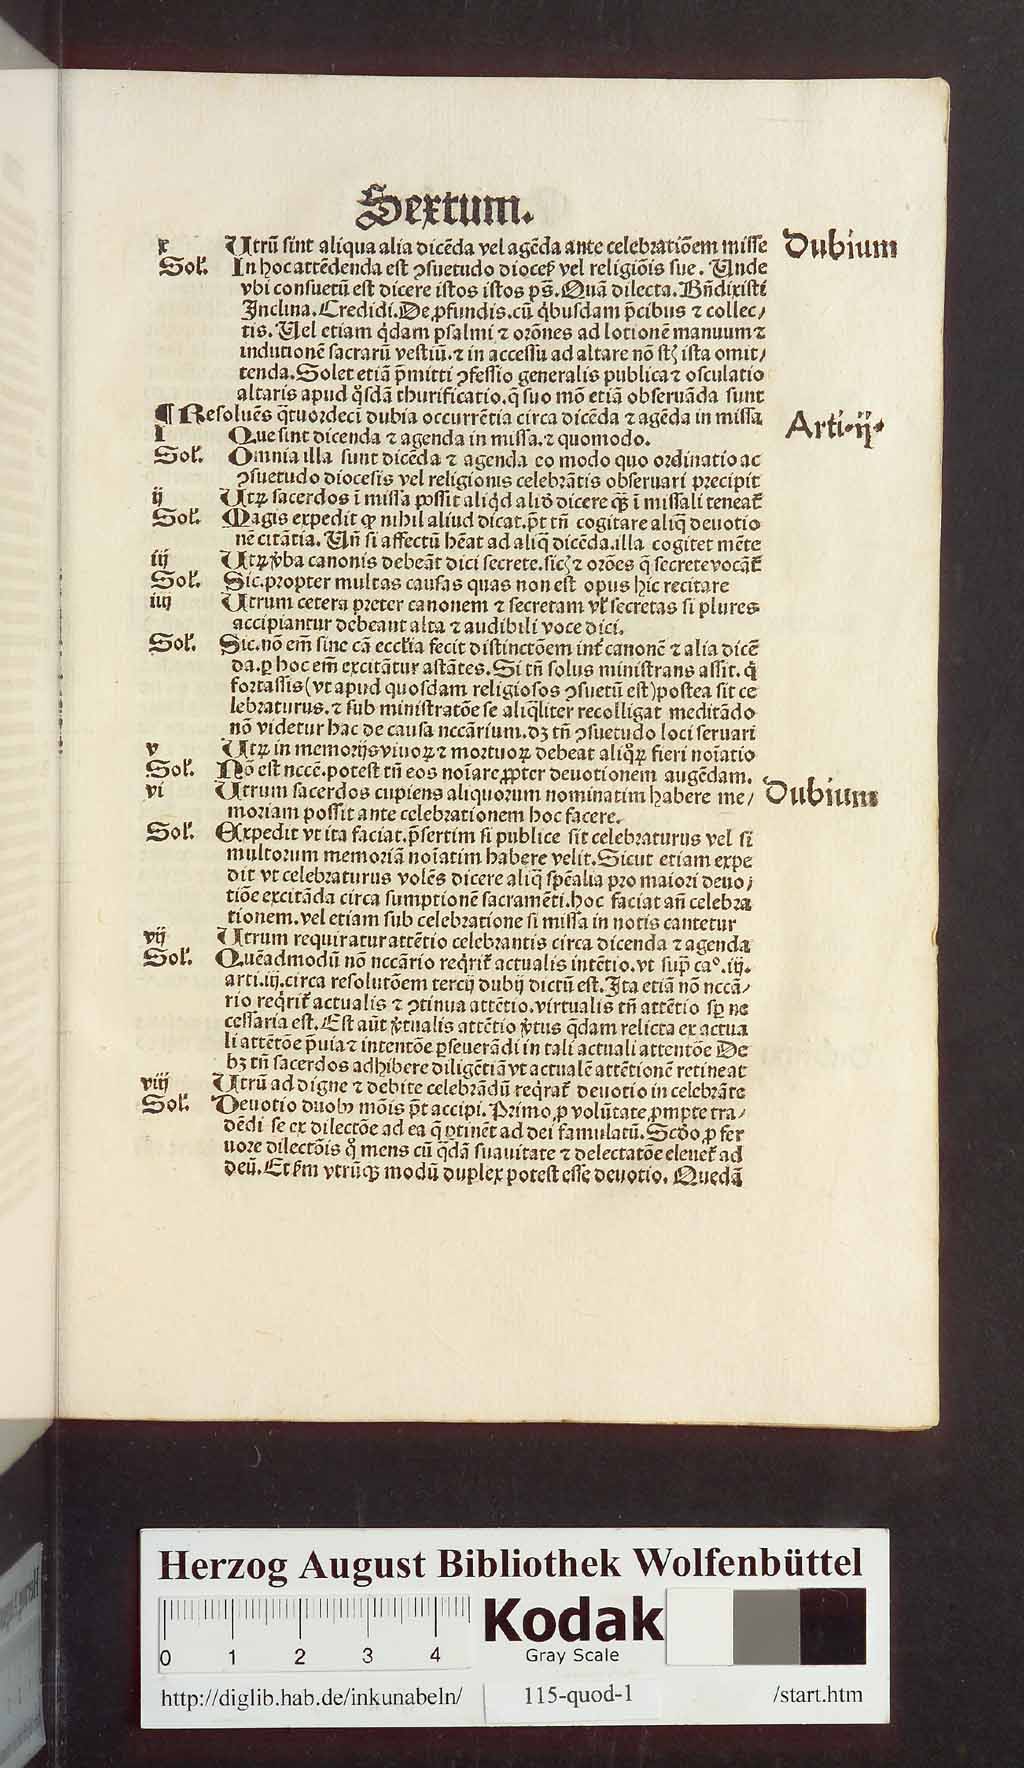 Sextum.
x Utrū sint aliqua alia dicēda vel agēda ante celebratiōem misse Dubium
Sol̃. In hoc attēdenda est ꝯsuetudo dioceſ vel religiōis sue. Unde
vbi consuetū est dicere istos istos ps̄. Quā dilecta. Bn̄dixisti
Inclina. Credidi. De ꝓfundis. cū qͥbusdam p̄cibus ⁊ collec/
tis. Uel etiam qͥdam psalmi ⁊ orōnes ad lotionē manuum ⁊
indutionē sacrarū vestiū. ⁊ in accessu ad altare nō stꝫ ista omit/
tenda. Solet etiā p̄mitti ꝯfessio generalis publica ⁊ osculatio
altaris apud qͦsdā thurificatio. q̄ suo mō etiā obseruāda sunt
¶ Resoluēs qͣtuordeci dubia occurrētia circa dicēda ⁊ agēda in missa Arti.ij.
I Que sint dicenda ⁊ agenda in missa. ⁊ quomodo.
Sol̃. Omnia illa sunt dicēda ⁊ agenda eo modo quo ordinatio ac
ꝯsuetudo diocesis vel religionis celebrātis obseruari precipit
ij Utꝝ sacerdos ī missa possit aliqͥd aliḋ dicere qꝫ ī missali teneat̃
Sol̃. Magis expedit ꝙ nihil aliud dicat. p̄t tn̄ cogitare aliq̄ deuotio
nē citātia. Un̄ si affectū hēat ad aliq̄ dicēda. illa cogitet mēte
iij Utꝝ v̾ba canonis debeāt dici secrete. sicꝫ ⁊ orōes q̄ secrete vocāt̃
Sol̃. Sic. propter multas causas quas non est opus hic recitare
iiij Utrum cetera preter canonem ⁊ secretam vl̃ secretas si plures
accipiantur debeant alta ⁊ audibili voce dici.
Sol̃. Sic. nō em̄ sine cā eccl̃ia fecit distinctōem int̃ canonē ⁊ alia dicē
da. ꝑ hoc em̄ excitātur astātes. Si tn̄ solus ministrans assit. qͥ
fortassis (vt apud quosdam religiosos ꝯsuetū est) postea sit ce
lebraturus. ⁊ sub ministratōe se aliqͣliter recolligat meditādo
nō videtur hac de causa nccārium. dꝫ tn̄ ꝯsuetudo loci seruari
v Utꝝ in memorijs viuoꝝ ⁊ mortuoꝝ debeat aliqͦꝝ fieri noīatio
Sol̃. Nō est nccē. potest tn̄ eos noīare ꝓpter deuotionem augēdam.
vi Utrum sacerdos cupiens aliquorum nominatim habere me/ Dubium
moriam possit ante celebrationem hoc facere.
Sol̃. Expedit vt ita faciat. p̄sertim si publice sit celebraturus vel si
multorum memoriā noīatim habere velit. Sicut etiam expe
dit vt celebraturus volēs dicere aliq̄ spēalia pro maiori deuo/
tiōe excitāda circa sumptionē sacramēti. hoc faciat an̄ celebra
tionem. vel etiam sub celebratione si missa in notis cantetur
vij Utrum requiratur attētio celebrantis circa dicenda ⁊ agenda
Sol̃. Quēadmodū nō nccārio reqͥrit̃ actualis intētio. vt supͣ caº. iij.
arti. iij. circa resolutōem tercij dubij dictū est. Ita etiā nō nccā/
rio reqͥrit̃ actualis ⁊ ꝯtinua attētio. virtualis tn̄ attētio sꝑ ne
cessaria est. Est aūt v̾tualis attētio v̾tus q̄dam relicta ex actua
li attētōe p̄uia ⁊ intentōe ꝑseuerādi in tali actuali attentōe De
bꝫ tn̄ sacerdos adhibere diligētiā vt actualē attētionē retineat
viij Utrū ad digne ⁊ debite celebrādū reqͥrat̃ deuotio in celebrāte
Sol̃. Deuotio duobꝰ mōis p̄t accipi. Primo ꝓ volūtate ꝓmpte tra/
dēdi se ex dilectōe ad ea q̄ ꝑtinēt ad dei famulatū. Scḋo ꝓ fer
uore dilectōis qͦ mens cū q̄dā suauitate ⁊ delectatōe eleuet̃ ad
deū. Et ẜm vtrūqꝫ modū duplex potest esse deuotio. Quedā
Herzog August Bibliothek Wolfenbüttel
0 1 2 3 4
Kodak
Gray Scale
http://diglib.hab.de/inkunabeln/ 115-quod-1 /start.htm